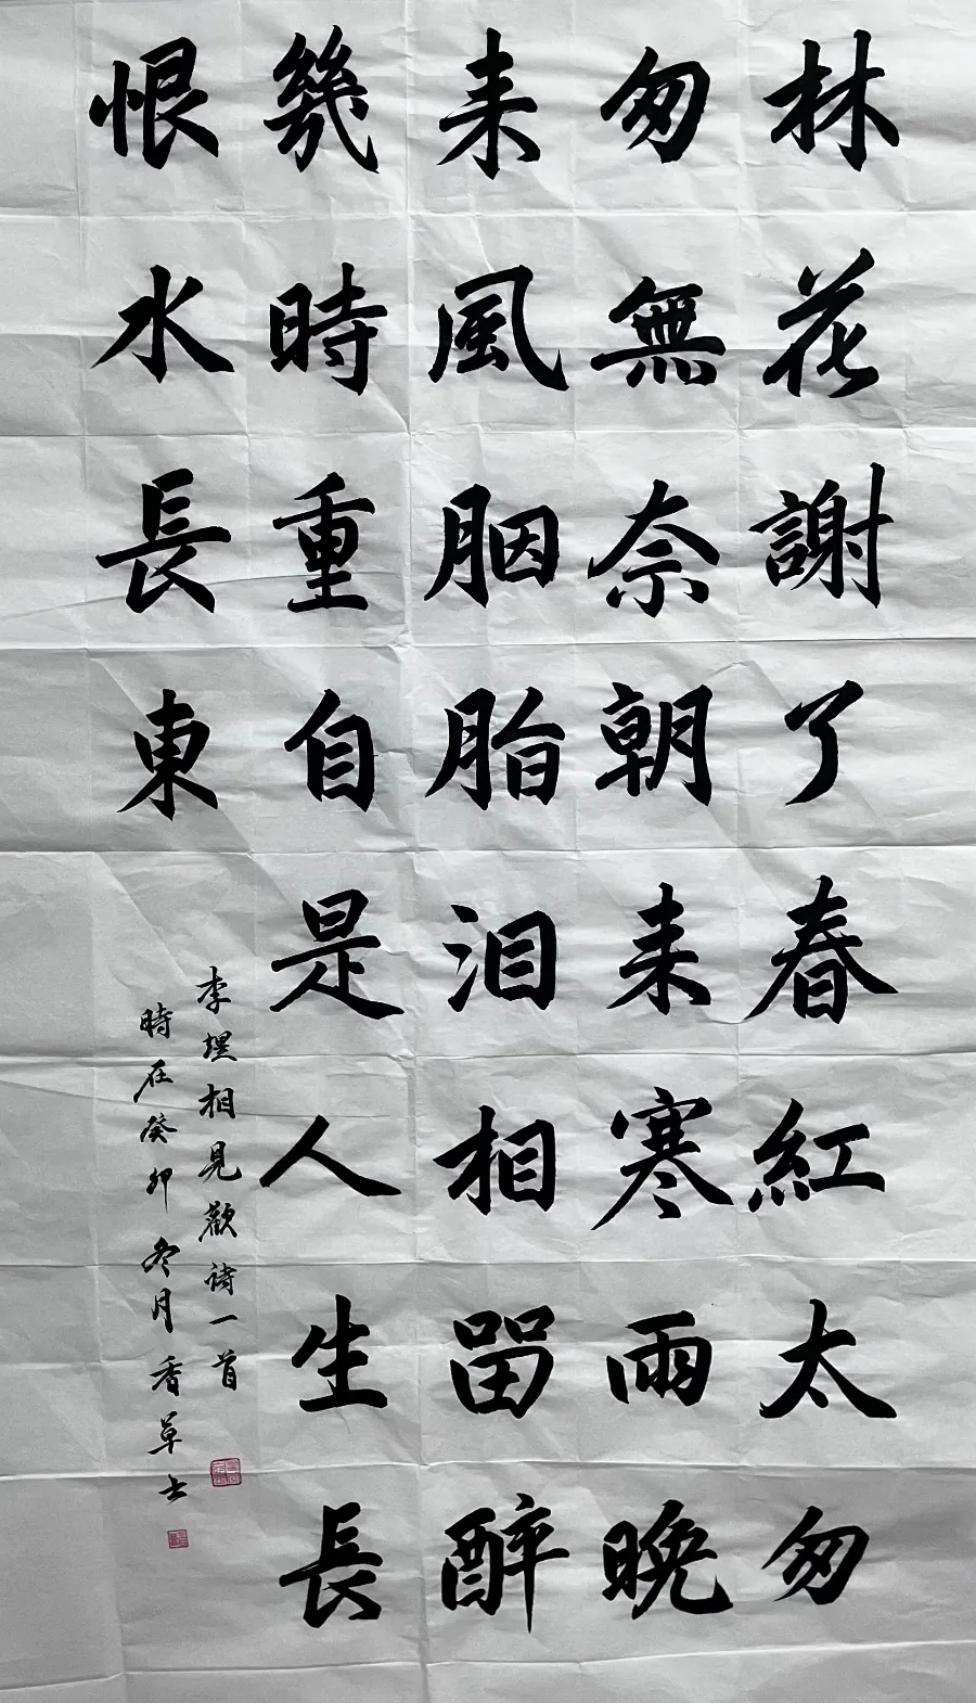 林花謝了春紅太匆
匆無奈朝来寒雨晚
来風胭脂泪相留醉
幾時重自是人生長
恨水長東
李煜相見歡詩一首
時在癸卯冬月香草士